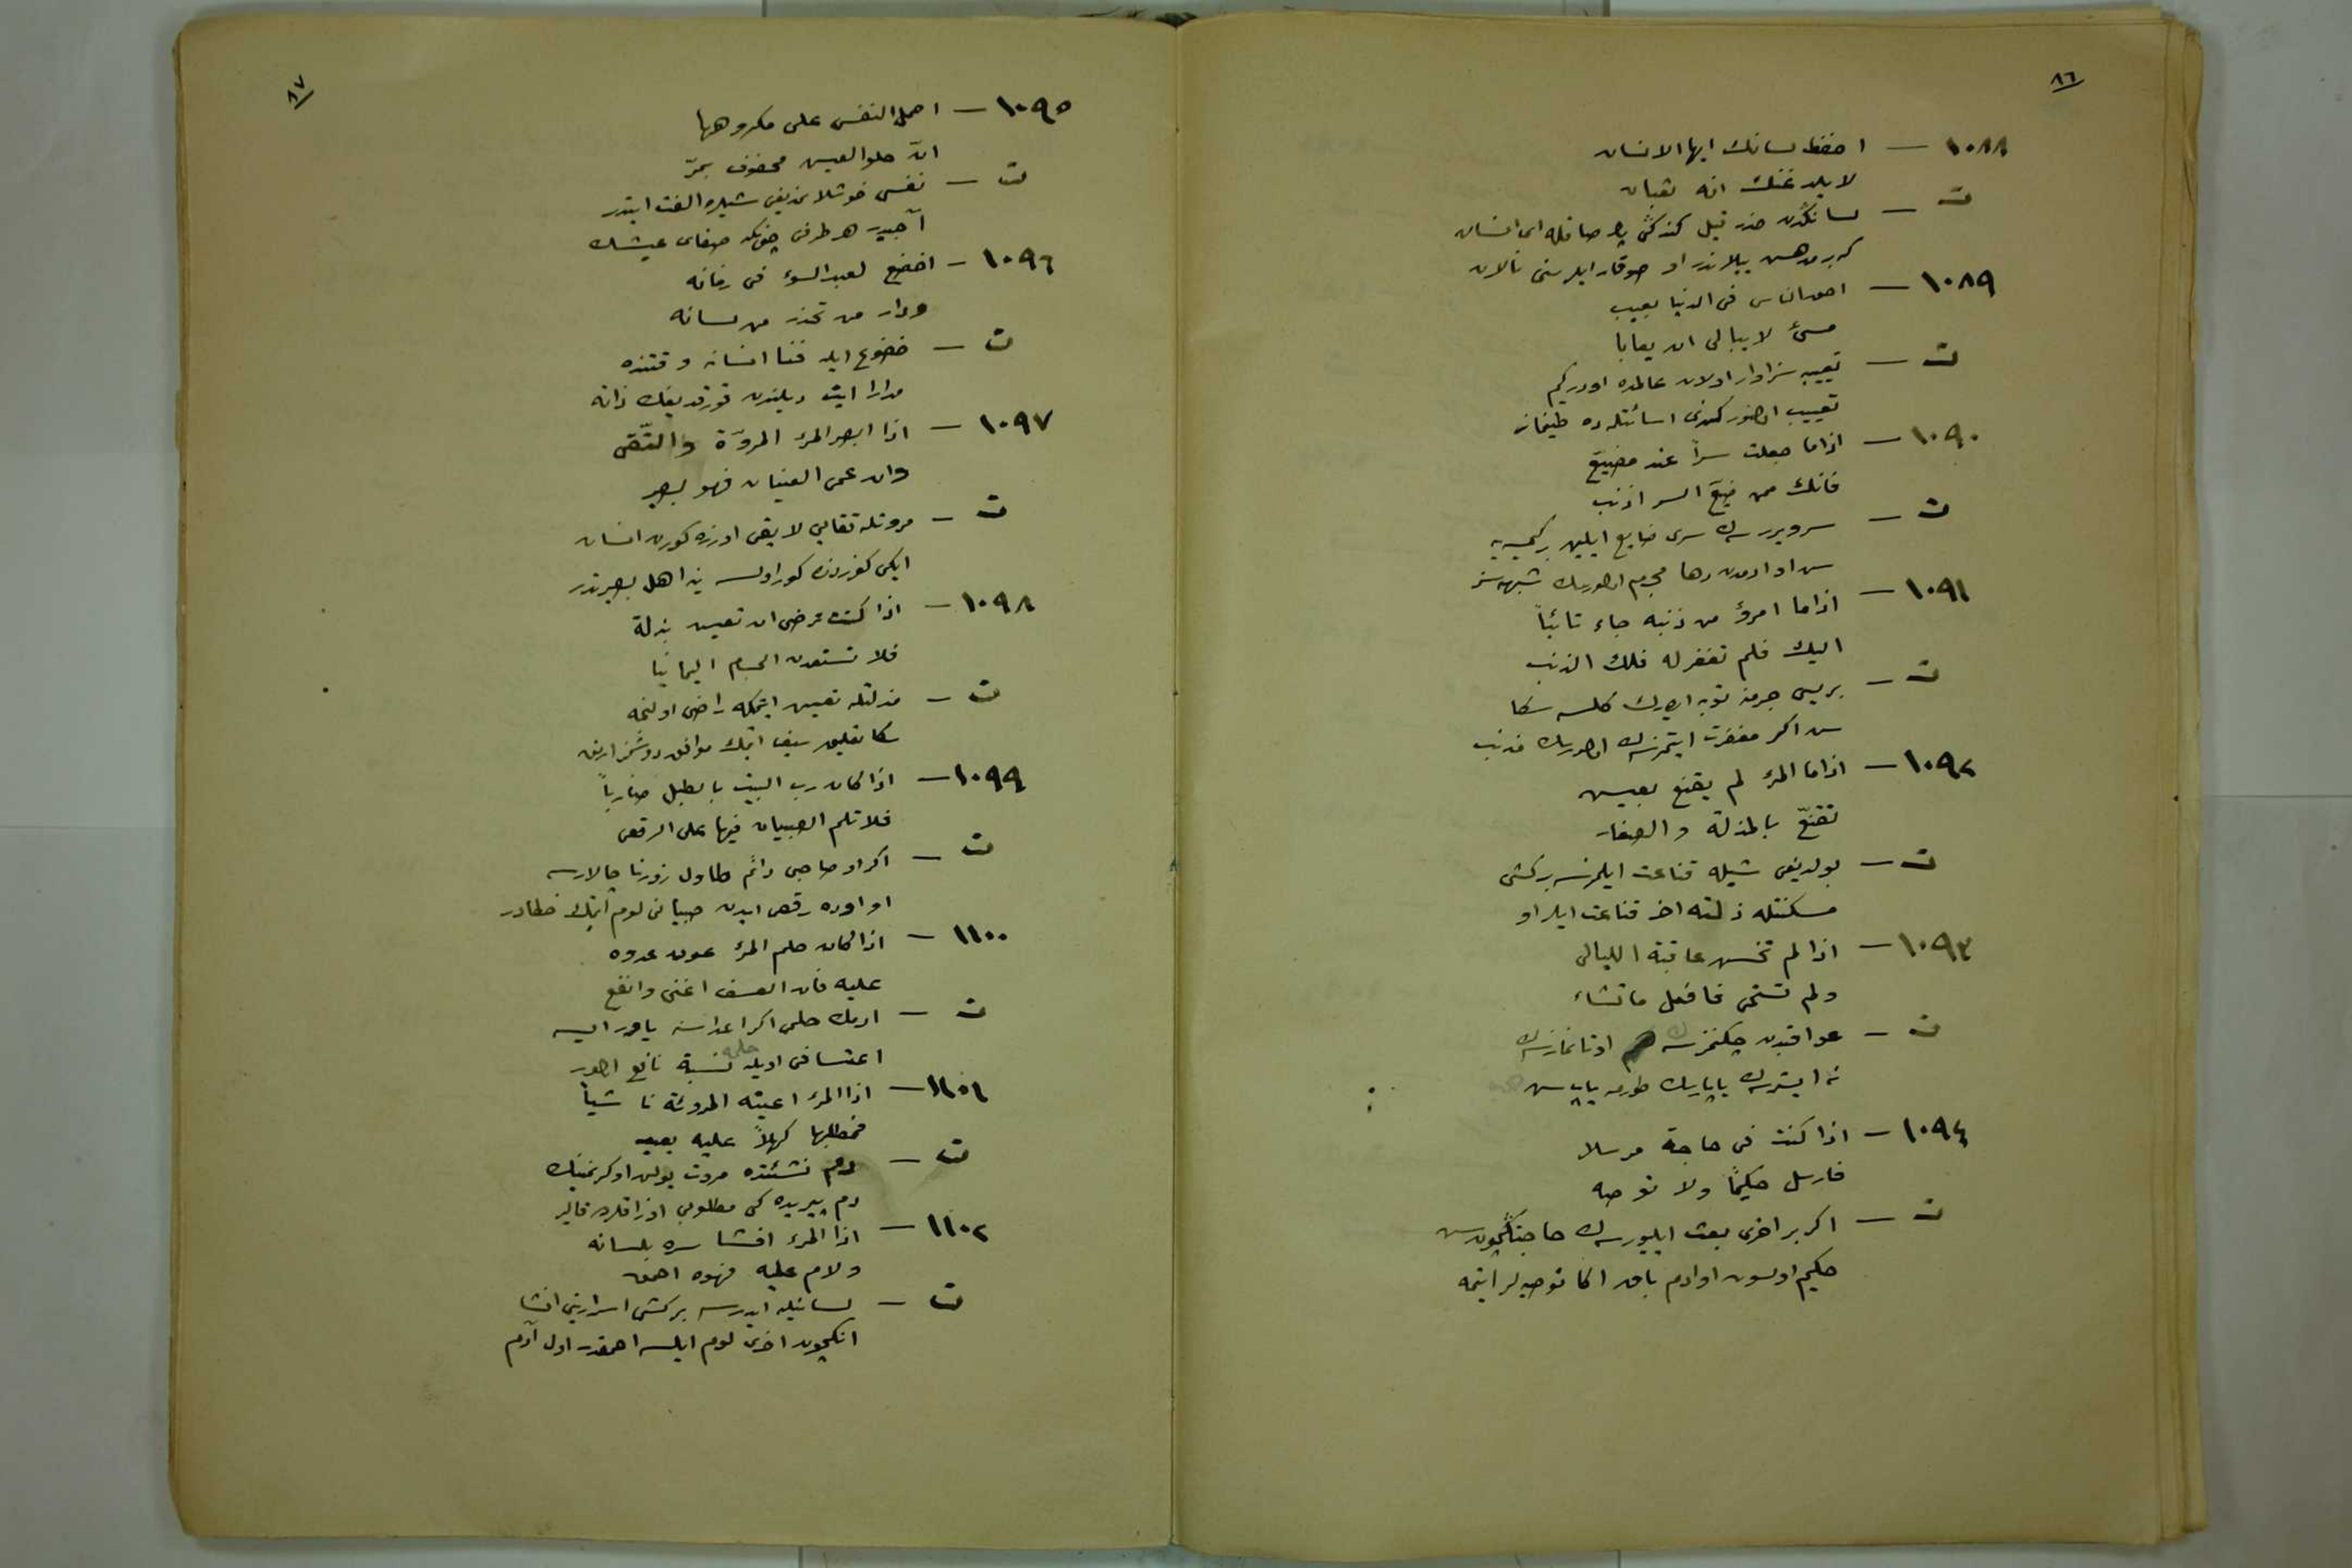 ٨٦
١٠٨٨ — احفظ لسانك ايها الانسان
لا يلدغنك انه ثعبان
ت — لساندن حذر قيل كندكى صاقله اى انسان
١٠٨٩ — احق الناس فى الدنيا بعيب
مسئ لا يبالى ان يعابا
ت — تعييبه سزاوار اولان عالمده اودركيم
تعييب اولنور كندى اسائتله ده
١٠٩٠ — اذا ما جعلت سراً عند مضيع
فانك ممن ضيع السر اذنب
ت — سر ويررسه ك سرى ضايع ايلين بر كيمسه يه
سن او ادمدن دها مجرم اولورسك شبهه سز
١٠٩١ — اذا ما امرؤ من ذنبه جاء تائباً
اليك فلم تغفر له فلك الذنب
ت — بريسى جرمنه توبه ايدرك كلسه سكا
سن اكر مغفرت ايتمزسه ك اولورسك مذنب
١٠٩٢ — اذا ما المرء لم يقنع بعيش
تقنّع بالمذلة و الصغار
ت — بولديغى شيله قناعت ايلمزسه بر كشى
مسكنتله ذلته اخر قناعت ايلر او
١٠٩٣ — اذا لم تخش عاقبة الليالى
ولم تستحى فافعل ما تشاء
ت — عواقبدن چكنمزسه ك اوتانمازسه ك
نه ايسترسه ك ياپارسك طورمه ياپ سن
١٠٩٤ — اذا كنت فى حاجة مرسلا
فارسل حكيماً ولا توصه
ت — اكر بر اخرى بعث ايليورسه ك حاجتكچون سن
حكيم اولسون او ادم باق اكا توصيه لر ايتمه
٨٧
١٠٩٥ — احمل النفس على مكروهها
انّ حلو العيش محفوف بمرّ
ت — نفسى خوشلانمديغى شيلره الفت ايتدر
آجيدر هر طرفى چونكه صفاى عيشك
١٠٩٦ — اخضع لعبد السوء فى زمانه
ودار من تحذر من لسانه
ت — خضوع ايله فنا انسانه وقتنده
مدارا ايت ديلندن قورقديغك ذاته
١٠٩٧ — اذا ابصر المرء المروّة والتّقى
وان عمى العينان فهو بصير
ت — مروتله تقايى لايقى اوزره كورن انسان
ايكى كوزدن كور اولسه ينه اهل بصيرتدر
١٠٩٨ — اذا كنت ترضى ان تعيش بذلة
فلا تستعدن الحسام اليمانيا
ت — مذلتله تعيش ايتمكه راضى اولنجه
سكا تعليق سيف ايتمك موافق دوشمز ارتق
١٠٩٩ — اذا كان رب البيت بالطبل ضارباً
فلا تلم الصبيان فيها على الرقص
ت — اكر او صاحبى دائم طاول زورنا چالارسه
او اوده رقص ايدن صبيانى لوم ايتمك خطادر
١١٠٠ — اذا كان حلم المرء عون عدوه
عليه فان العسف اغنى وانفع
ت — ارمك حلمى اكر اعداسنه ياور ايسه
اعتسافى اويله حلمه نسبة نافع اولور
١١٠١ — اذا المرء اعيته المروئة ناشياً
فمطلبها كهلاً عليه بعيد
ت — دم نشئتده مروت يولى او كرنمينك
دم پيريده كى مطلوبى اوزاقلرده قالير
١١٠٢ — اذا المرء افشا سره بلسانه
ولام عليه فهوه احمق
ت — لسانيله ايدرسه بر كشى اسرارينى افشا
انكچون اخرى لوم ايلسه احمقدر اول آدم